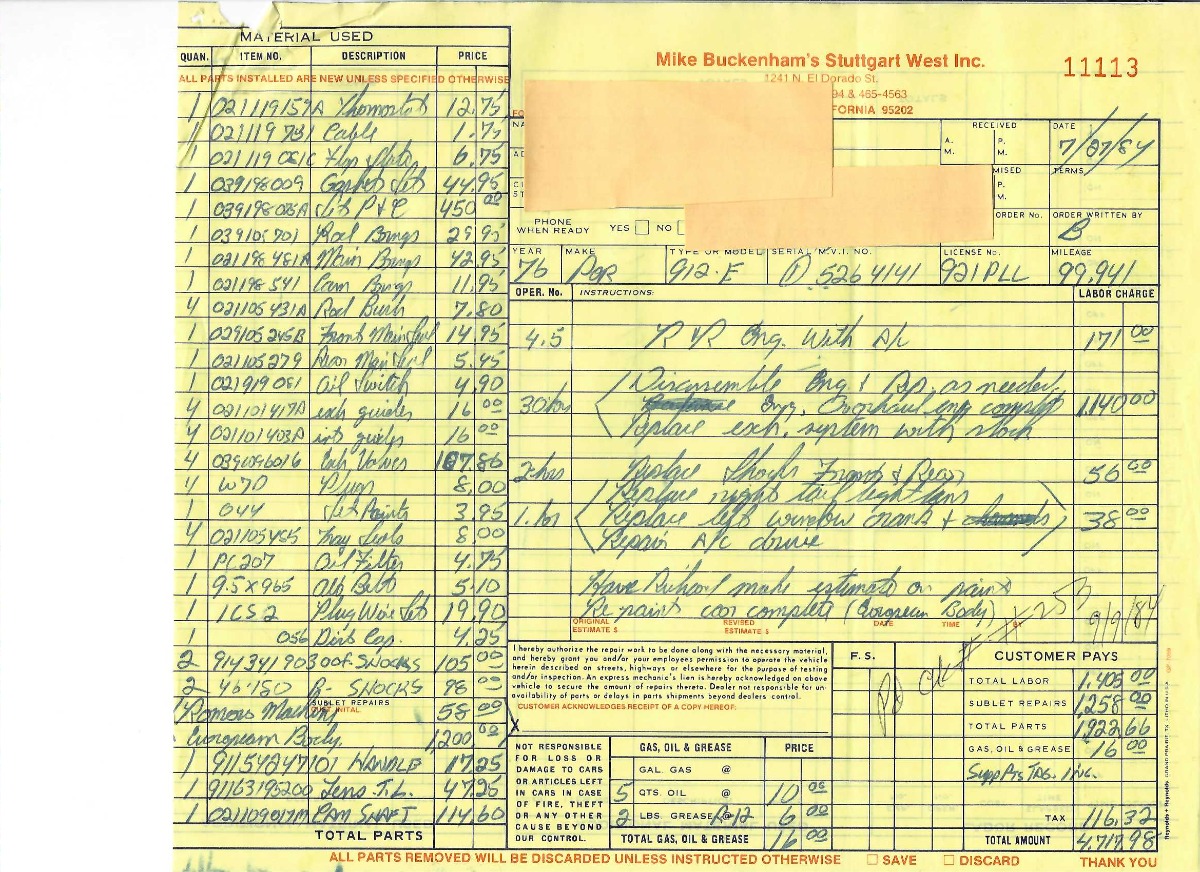 MATERIAL USED
QUAN. ITEM NO. DESCRIPTION PRICE
ALL PARTS INSTALLED ARE NEW UNLESS SPECIFIED OTHERWISE
1 021119159A 12.75
1 021119781 Cable 1.75
1 021 119 081C 6.75
1 039198009 Gasket Set 44.95
1 Set P & C 450 00
1 039105701 Rod Brngs 29.95
1 021198481A Main Brngs 42.95
1 021198541 Cam Brngs 11.95
4 021105431A Rod Bush 7.80
1 029105245B Front Main Seal 14.95
1 021105279 Rear Main Seal 5.45
1 021919081 Oil Switch 4.90
4 021101417A exh guides 16 00
4 021101403A int guides 16 00
4 Exh Valves 107.80
4 W7D Plugs 8.00
1 044 Set Points 3.95
4 Seals 8.00
1 PC207 Oil Filter 4.75
1 9.5X965 Alt Belt 5.10
1 1CS2 Plug Wire Set 19.90
1 056 Dist Cap. 4.25
2 914341903 00F. SHOCKS 105 00
2 46-150 R- SHOCKS 98 00
SUBLET REPAIRS
58 00
European Body. 1,200 00
1 91154247101 HANDLE 17.25
1 91163195200 Lens T.L. 47.25
1 021109017M CAM SHAFT 114.60
TOTAL PARTS
Mike Buckenham's Stuttgart West Inc.
11113
1241 N. El Dorado St.
94 & 465-4563
FORNIA 95202
RECEIVED A. M. P. M.
DATE 7/27/84
MISED P. M.
TERMS
ORDER No.
ORDER WRITTEN BY B
PHONE WHEN READY YES NO
YEAR 76 MAKE Por TYPE OR MODEL 912-E SERIAL/M.V.I. NO. 5264141 LICENSE No. 921PLL MILEAGE 99,941
OPER. No. INSTRUCTIONS: LABOR CHARGE
4.5 R & R Eng. With A/c 171 00
Disassemble Eng & Rep. as needed.
30 hrs Eng, Overhaul eng complet 1,140 00
Replace exh. system with stock
2 hrs Replace Shocks Front & Rear 56 00
Replace right tail light lens
1. hr Replace left window crank & 38 00
Repair A/c
Have Richard make estimate on paint
Repaint car complete (European Body)
ORIGINAL ESTIMATE $ REVISED ESTIMATE $ DATE TIME BY
Pd Ck # 9/9/84
I hereby authorize the repair work to be done along with the necessary material, and hereby grant you and/or your employees permission to operate the vehicle herein described on streets, highways or elsewhere for the purpose of testing and/or inspection. An express mechanic's lien is hereby acknowledged on above vehicle to secure the amount of repairs thereto. Dealer not responsible for unavailability of parts or delays in parts shipments beyond dealers control.
CUSTOMER ACKNOWLEDGES RECEIPT OF A COPY HEREOF:
X
F. S. CUSTOMER PAYS
TOTAL LABOR 1,405 00
SUBLET REPAIRS 1,258 00
TOTAL PARTS 1,922.66
GAS, OIL & GREASE 16 00
TAX 116.32
TOTAL AMOUNT 4,717.98
NOT RESPONSIBLE FOR LOSS OR DAMAGE TO CARS OR ARTICLES LEFT IN CARS IN CASE OF FIRE, THEFT OR ANY OTHER CAUSE BEYOND OUR CONTROL.
GAS, OIL & GREASE PRICE
GAL. GAS @
5 QTS. OIL @ 10 00
2 LBS. GREASE @ R-12 6 00
TOTAL GAS, OIL & GREASE 16 00
ALL PARTS REMOVED WILL BE DISCARDED UNLESS INSTRUCTED OTHERWISE SAVE DISCARD THANK YOU